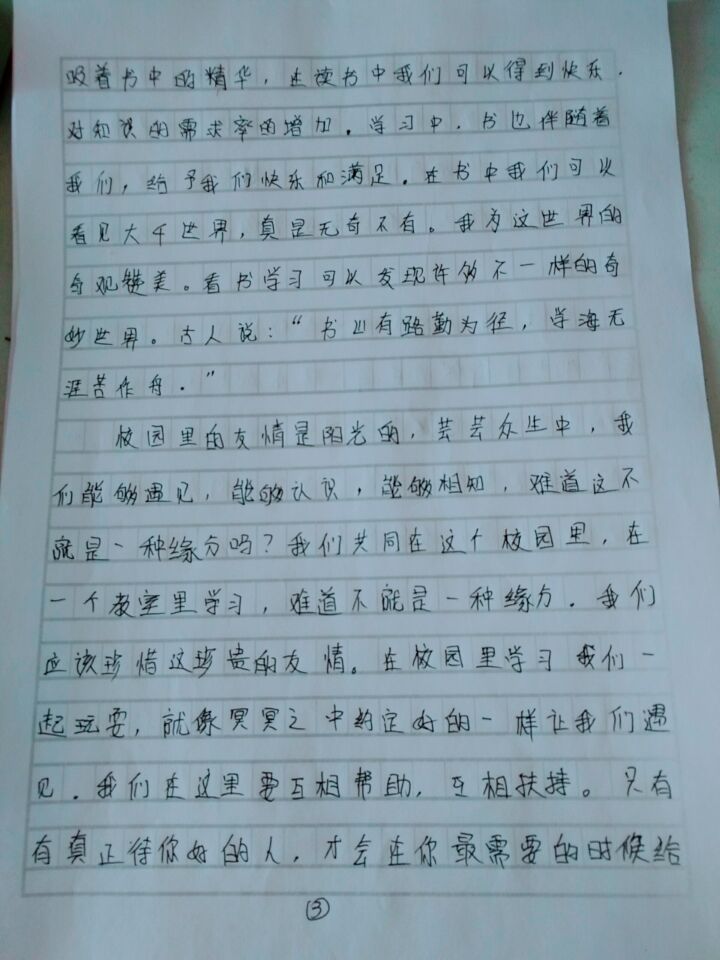 吸着书中的精华，在读书中我们可以得到快乐．
对知识的需求率的增加．学习中．书也伴随着
我们，给予我们快乐和满足．在书中我们可以
看见大千世界，真是无奇不有。我为这世界的
奇观赞美。看书学习可以发现许多不一样的奇
妙世界。古人说：“书山有路勤为径，学海无
涯苦作舟．”
校园里的友情是阳光的，芸芸众生中，我
们能够遇见，能够认识，能够相知，难道这不
就是一种缘分吗？我们共同在这个校园里，在
一个教室里学习，难道不就是一种缘分．我们
应该珍惜这珍贵的友情。在校园里学习我们一
起玩耍，就像冥冥之中约定好的一样让我们遇
见．我们在这里要互相帮助，互相扶持。只有
有真正待你好的人，才会在你最需要的时候给
③